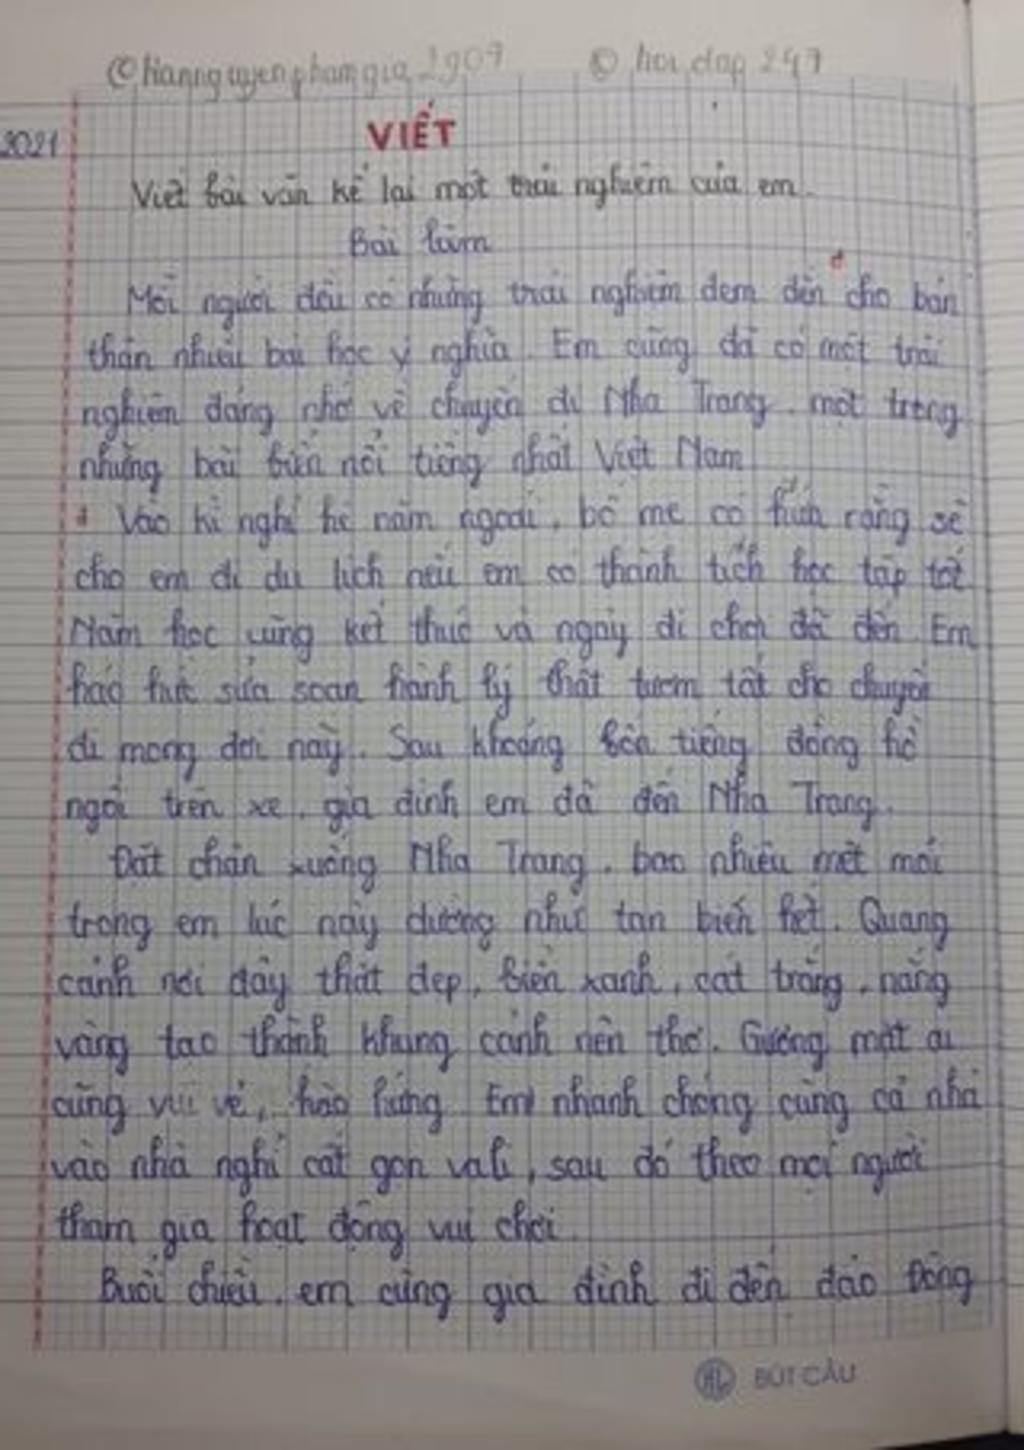 © hannguyenphamgia2907 © hoidap247
2021
VIẾT
Viết bài văn kể lại một trải nghiệm của em.
Bài làm
Mỗi người đều có những trải nghiệm đem đến cho bản
thân nhiều bài học ý nghĩa. Em cũng đã có một trải
nghiệm đáng nhớ về chuyến đi Nha Trang, một trong
những bãi biển nổi tiếng nhất Việt Nam
Vào kì nghỉ hè năm ngoái, bố mẹ có hứa rằng sẽ
cho em đi du lịch nếu em có thành tích học tập tốt
Năm học cũng kết thúc và ngày đi chơi đã đến. Em
háo hức sửa soạn hành lý thật tươm tất cho chuyến
đi mong đợi này. Sau khoảng bốn tiếng đồng hồ
ngồi trên xe, gia đình em đã đến Nha Trang.
Đặt chân xuống Nha Trang, bao nhiêu mệt mỏi
trong em lúc này dường như tan biến hết. Quang
cảnh nơi đây thật đẹp, biển xanh, cát trắng, nắng
vàng tạo thành khung cảnh nên thơ. Gương mặt ai
cũng vui vẻ, hào hứng. Em nhanh chóng cùng cả nhà
vào nhà nghỉ cất gọn vali, sau đó theo mọi người
tham gia hoạt động vui chơi.
Buổi chiều, em cùng gia đình đi đến đảo Đông
BÚT CÂU